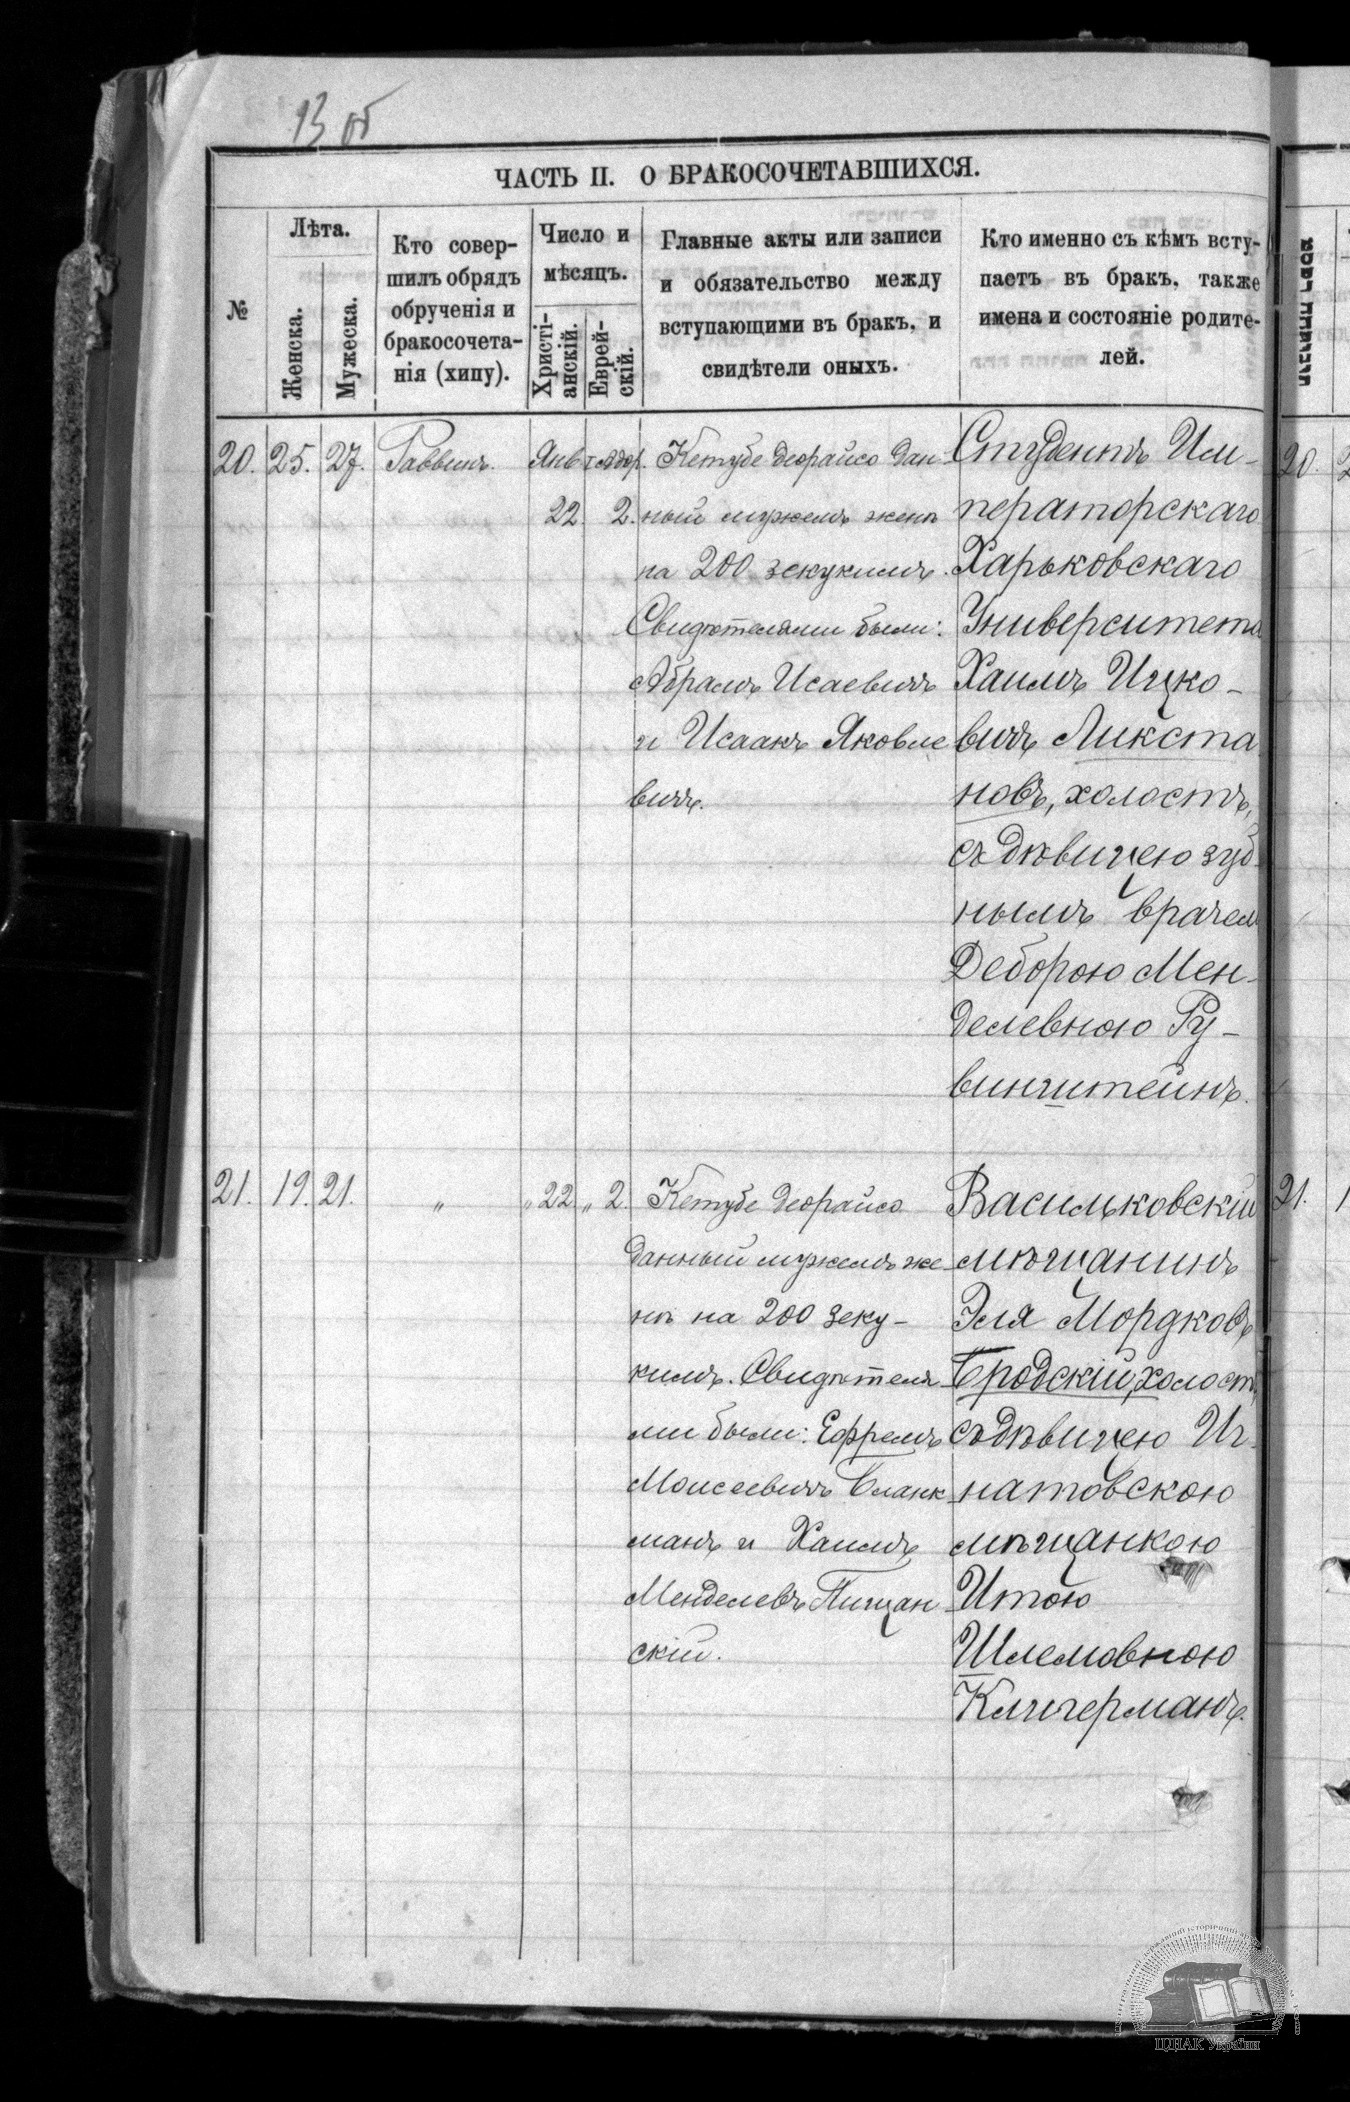 13 об
ЧАСТЬ II. О БРАКОСОЧЕТАВШИХСЯ.
№
Лѣта.
Женска.
Мужеска.
Кто совер-
шилъ обрядъ
обрученія и
бракосочета-
нія (хипу).
Число и
мѣсяцъ.
Христі-
анскій.
Еврей-
скій.
Главные акты или записи
и обязательство между
вступающими въ бракъ, и
свидѣтели оныхъ.
Кто именно съ кѣмъ всту-
паетъ въ бракъ, также
имена и состояніе родите-
лей.
20. 25. 27. Раввинъ. Янв
22. 2.
Кетубе деорайсо дан-
ный мужемъ женѣ
на 200 зекукимъ.
Свидѣтелями были:
Абрамъ Исаевичъ
и Исаакъ Яковле
вичъ.
Студентъ Им-
ператорскаго
Харьковскаго
Университета
Хаимъ Ицко-
вичъ Ликста
новъ, холостъ,
съ дѣвицею зуб-
нымъ врачем
Деборою Мен-
делевною Ру-
винштейнъ.
21. 19. 21. " " 22 " 2.
Кетубе деорайсо
данный мужемъ же-
нѣ на 200 зеку-
кимъ. Свидѣтеля-
ми были: Ефремъ
Моисеевичъ Бланк-
манъ и Хаимъ
Менделевъ Пищан-
скій.
Васильковскій
мѣщанинъ
Эля Мордковъ
Бродскій, холостъ,
съ дѣвицею Иг-
натовскою
мѣщанкою
Итою
Шлемовною
Клигерманъ.
20.
21.
ЦДІАК України